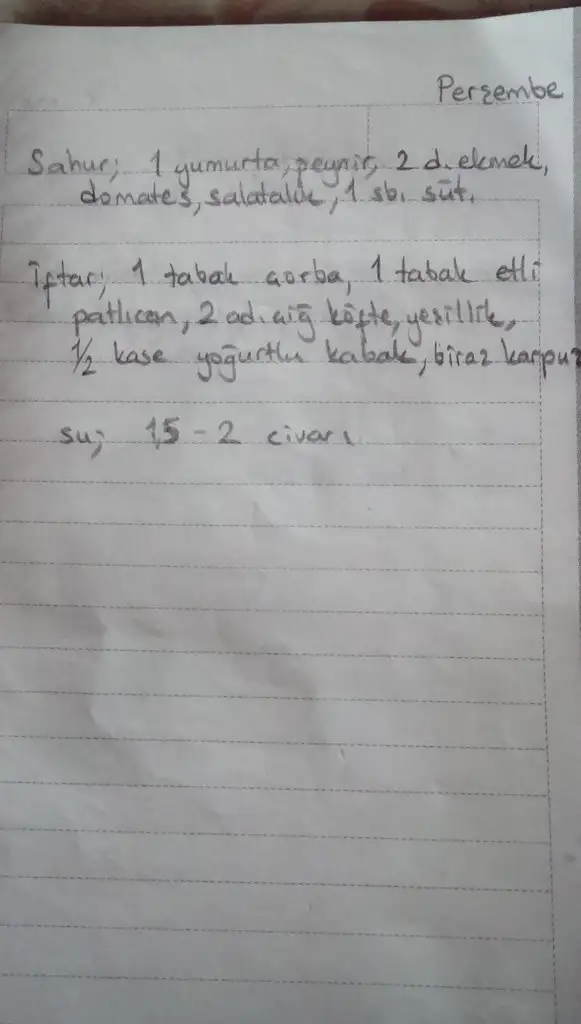 Perşembe
Sahur; 1 yumurta, peynir, 2 d. ekmek,
domates, salatalık, 1 sb. süt.
İftar; 1 tabak çorba, 1 tabak etli
patlıcan, 2 ad. çiğ köfte, yeşillik,
1/2 kase yoğurtlu kabak, biraz karpuz
su; 1,5 - 2 civarı